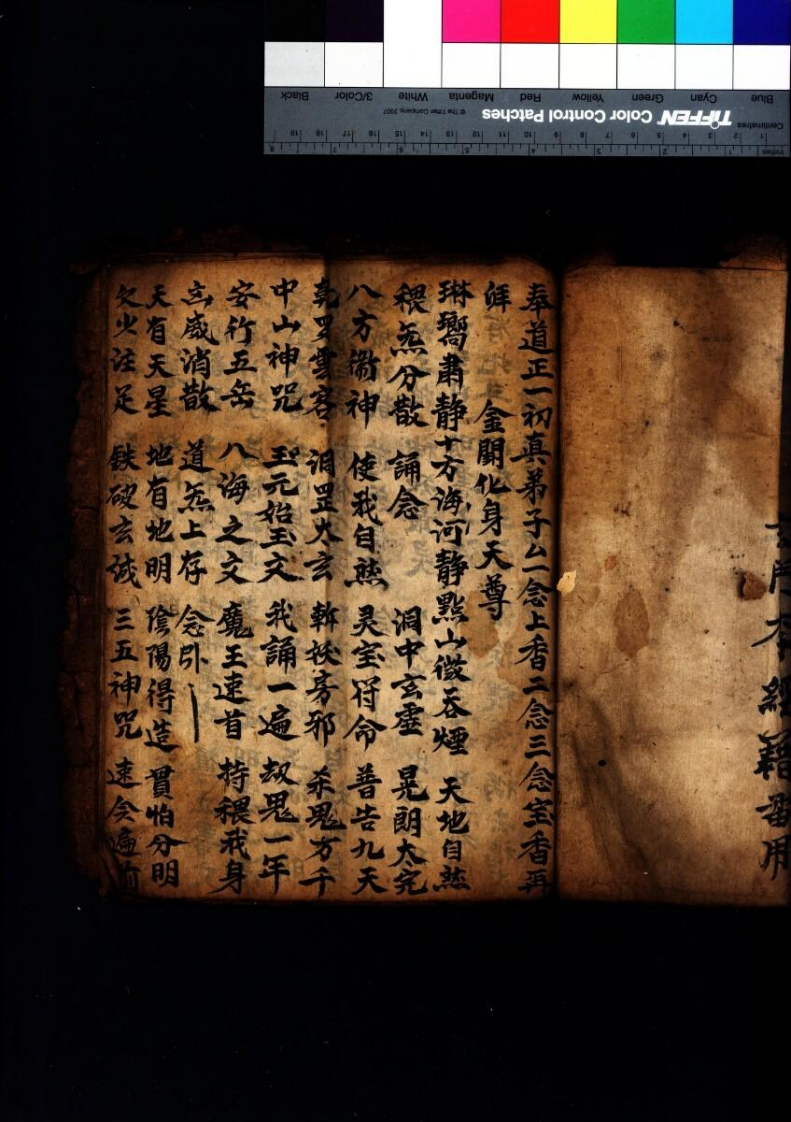 Blue Cyan Green Yellow Red Magenta White 3/Color Black
TIFFEN Color Control Patches © The Tiffen Company, 2007
Centimetres
Inches
本經籍畨用
奉道正一初真弟子厶一念上香二念三念宝香再
金闕化身天尊
琳嚮肅静十方海河静黙山徴吞煙 天地自然
穢炁分散 誦念 洞中玄虚 晃朗太完
八方衞神 使我自然 灵宝符命 普告九天
乾罗 洞罡太玄 斬妖 邪 杀鬼方千
中山神咒 玉元始玉文 我誦一遍 刼鬼一年
安行五岳 八海之文 魔王速首 持穢我身
玄威消散 道炁上存 念卟
天有天星 地有地明 陰陽得造 貫怕分明
欠少注足 鉄破玄诚 三五神咒 速会遍前